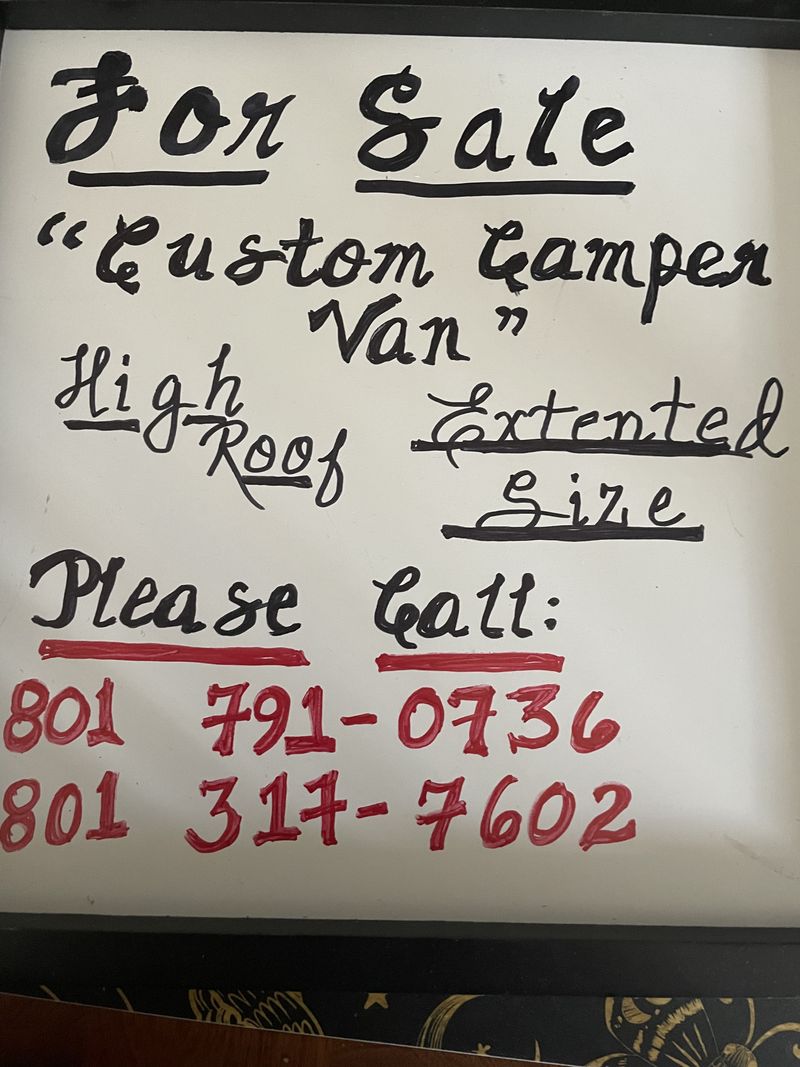 For Sale
"Custom Camper
Van"
High
Roof
Extented
Size
Please Call:
801 791-0736
801 317-7602